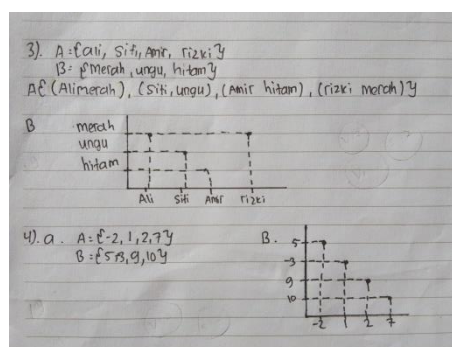 3). A={ali, Siti, Amir, rizki}
B={merah, ungu, hitam}
A{(Alimerah), (Siti, ungu), (Amir hitam), (rizki merah)}
B
merah
ungu
hitam
Ali Siti Amir rizki
4). a. A={-2, 1, 2, 7}
B={5,-3, 9, 10}
B.
5
-3
9
10
-2 1 2 7